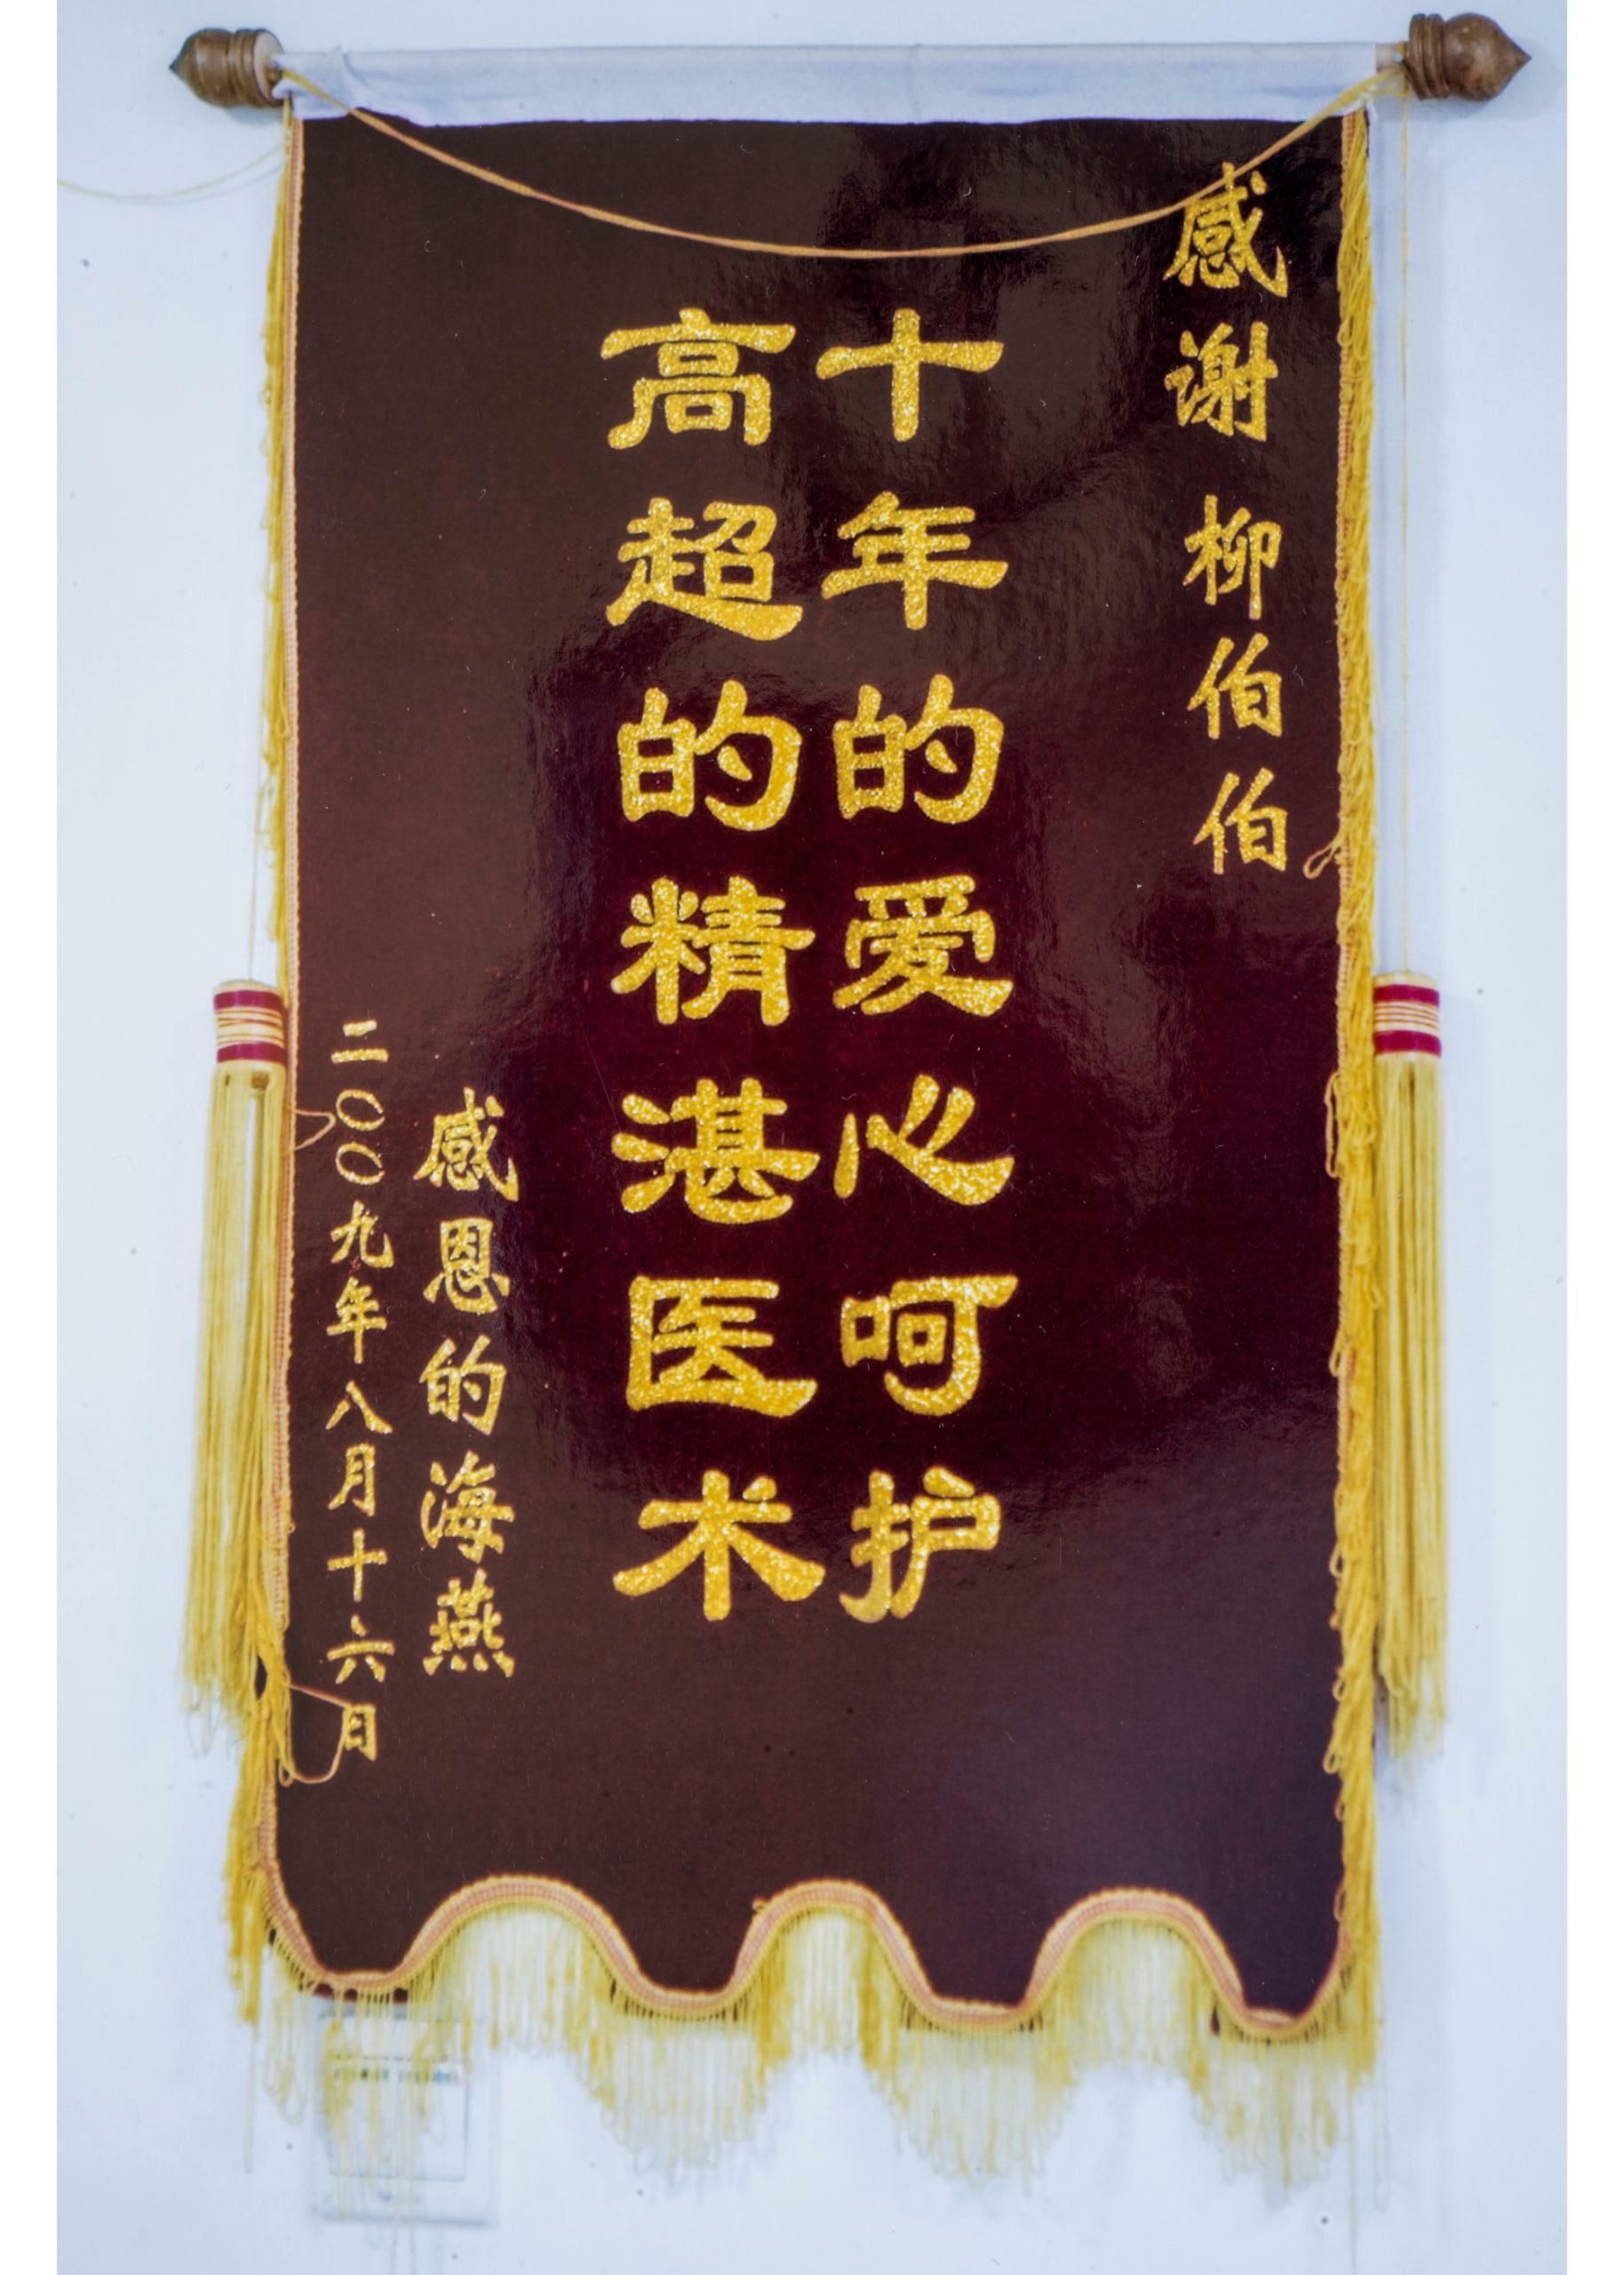 感谢柳伯伯
十年的爱心呵护
高超的精湛医术
感恩的海燕
二〇〇九年八月十六日